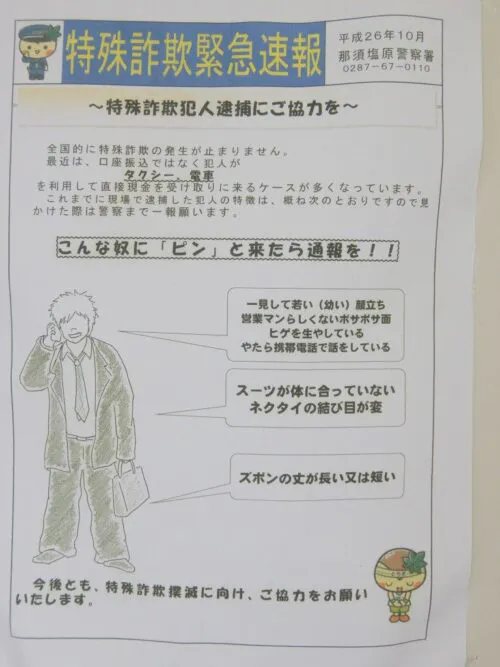 特殊詐欺緊急速報
平成26年10月
那須塩原警察署
0287-67-0110
～特殊詐欺犯人逮捕にご協力を～
全国的に特殊詐欺の発生が止まりません。
最近は、口座振込ではなく犯人が
タクシー、電車
を利用して直接現金を受け取りに来るケースが多くなっています。
これまでに現場で逮捕した犯人の特徴は、概ね次のとおりですので見
かけた際は警察まで一報願います。
こんな奴に「ピン」と来たら通報を！！
一見して若い（幼い）顔立ち
営業マンらしくないボサボサ面
ヒゲを生やしている
やたら携帯電話で話をしている
スーツが体に合っていない
ネクタイの結び目が変
ズボンの丈が長い又は短い
今後とも、特殊詐欺撲滅に向け、ご協力をお願い
いたします。